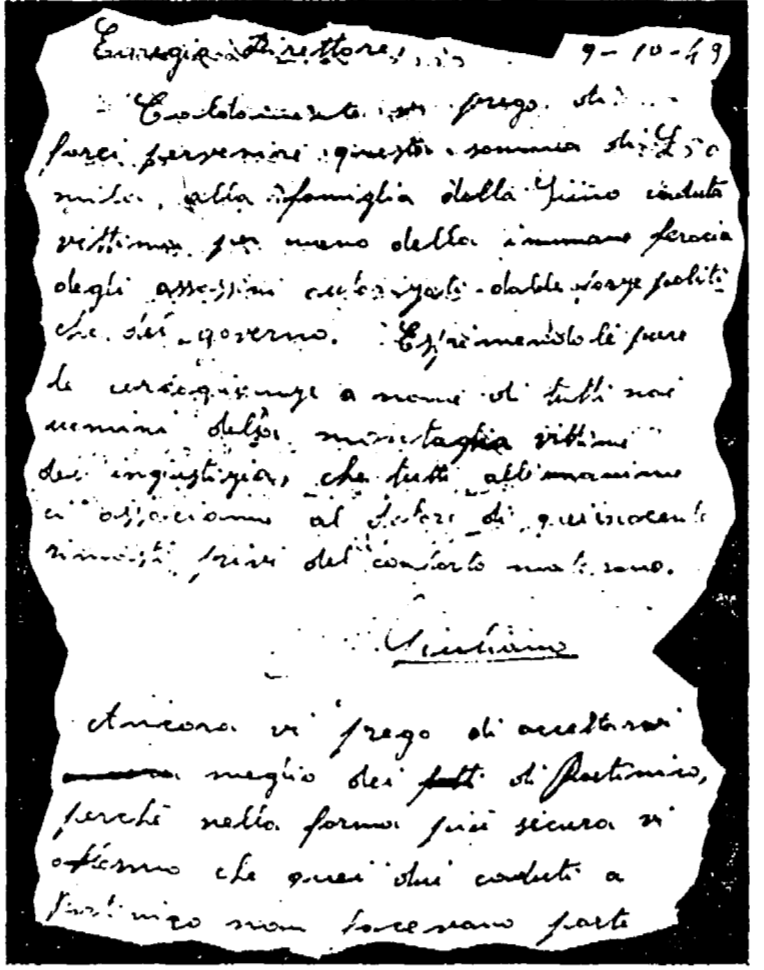 Egregio Direttore, 9-10-49
Caldamente vi prego di
farci pervenire questa somma di L 50
mila, alla famiglia della Giino caduta
vittima per mano della inumane ferocia
degli assassini autorizzati dalle forze politi
che del governo. Esprimendole pure
le a nome di tutti noi
uomini della montaglia vittime
dei ingiustizia, che tutti all'unanime
ci associamo al dolore di quei inocenti
rimasti privi del conforto materno.
Giuliano
Ancora vi prego di accertarvi
meglio dei fatti di Partinico,
perchè nella forma più sicura vi
affermo che quei due caduti a
Partinico non facevano parte